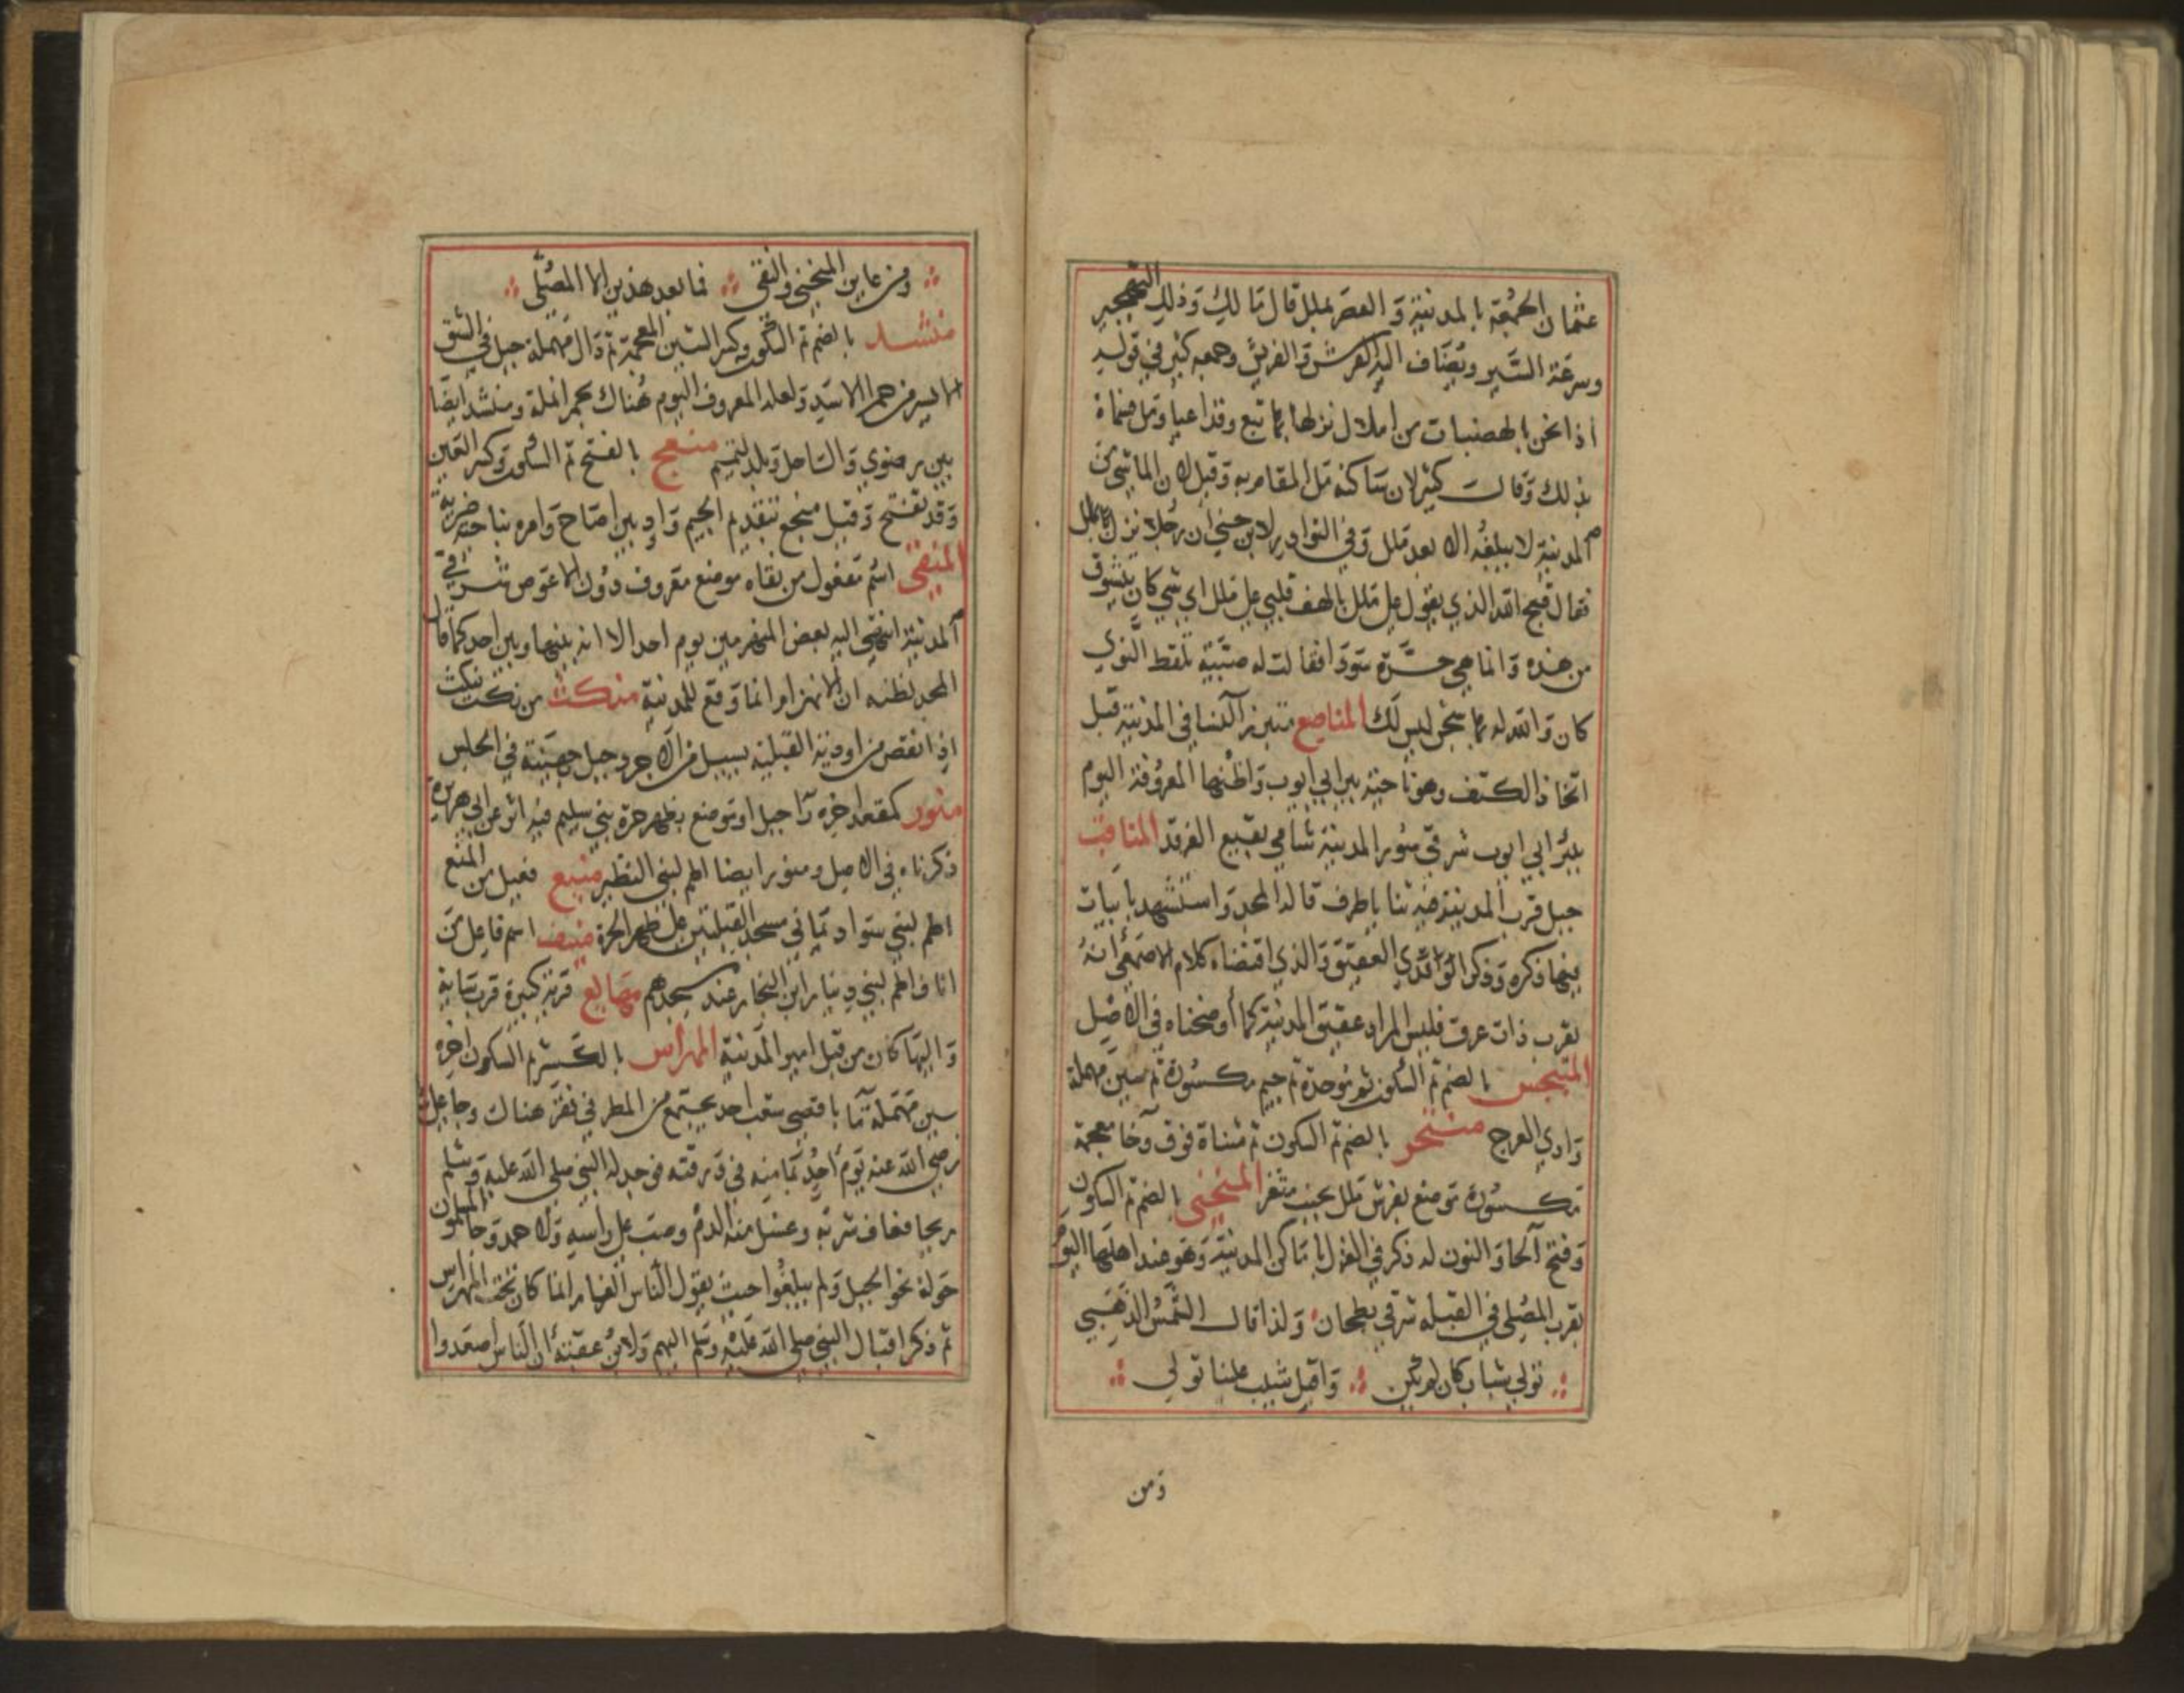 عثمان الجمعة بالمدينة والعصر بملل قال مالك وذلك للتهجير
وسرعة السير ويضاف اليه الفرش والفريش وجمعه كثير في قوله
اذا نحن بالهضبات من املال نزلها تبع وقد اعيا ومل
بذلك وقال كثير لان ساكنه مل المقام به وقيل لان الماشي من
المدينة لا يبلغه الا بعد ملل وفي النوادر لابن جني ان رجلا نزل ملل
فقال قبح الله الذي يقول على ملل يالهف قلبي على ملل اي شي كان يتشوق
من هذه وانما هي حرة سودا فقالت له صبية تلقط النوي
كان والله له بها شجن ليس لك المناصع متبرز النسا في المدينة قبل
اتخاذ الكنف وهو ناحية بير ابي ايوب واظنها المعروفة اليوم
ببئر ابي ايوب شرقي سور المدينة شامي بقيع الغرقد المناقب
جبل قرب المدينة فيه ثنايا طرق قاله المجد واستشهد بابيات
فيها ذكره وذكر الواقدي العقيق والذي اقتضاه كلام الاصمعي انه
بقرب ذات عرق فليس المراد عقيق المدينة كما أوضحناه في الاصل
المنبجس بالضم ثم السكون ثم موحدة ثم جيم مكسورة ثم سين مهملة
وادي العرج منتخر بالضم ثم السكون ثم مثناة فوق وخا معجمة
مكسورة موضع بفرش ملل بجنب مثغر المنحنى بالضم ثم السكون
وفتح الحا والنون له ذكر في الغزل باماكن المدينة وهو عند اهلها اليوم
بقرب المصلى في القبله شرقي بطحان ولذا قال الشمس الذهبي
تولي شبابي كان لم يكن واقبل شيب علينا تولي
ومن
ومن عاين المنحنى والنقى فما بعد هذين الا المصلى
منشد بالضم ثم السكون وكسر الشين المعجمة ثم دال مهملة جبل في الشق
الايسر من حمرا الاسد ولعله المعروف اليوم هناك بحمرا نملة ومنشد ايضا
بين رضوي والساحل وبلد لتميم منعج بالفتح ثم السكون وكسر العين
وقد تفتح وقيل منجع بتقديم الجيم واد بين امتاح وامره بناحية ضرية
المنقى اسم مفعول من نقاه موضع معروف دون الاعوص شرقي
المدينة انتهي اليه بعض المنهزمين يوم احد الا انه بينها وبين احد كما قال
المجد لظنه ان الانهزام انما وقع للمدينة منكث من نكث ينكث
اذا نقض من اودية القبلية يسيل من الاجرد جبل جهينة في الجلس
منور كمقعد اخره را جبل او موضع بظهر حرة بني سليم فيه اثر عن ابي هريرة
ذكرناه في الاصل ومنور ايضا اطم لبني النظير منيع فعيل من المنع
اطم لبني سواد يماني مسجد القبلتين على ظهر الحرة منيف اسم فاعل من
اناف اطم لبني دينار ابن النجار عند مسجدهم مهايع قرية كبيرة قرب ساية
واليها كان من قبل امير المدينة المهراس بالكسر ثم السكون اخره
سين مهملة ما باقصى شعب احد يجتمع من المطر في نقر هناك وجا على
رضي الله عنه يوم احد بما منه في درقته فوجد له النبي صلى الله عليه وسلم
ريحا فعاف شربه وغسل منه الدم وصب على راسه ولاحمد وجا المسلمون
حولة نحو الجبل ولم يبلغوا حيث يقول الناس الغار انما كان تحت المهراس
ثم ذكر اقبال النبي صلى الله عليه وسلم اليهم ولابن عقبة ان الناس اصعدوا